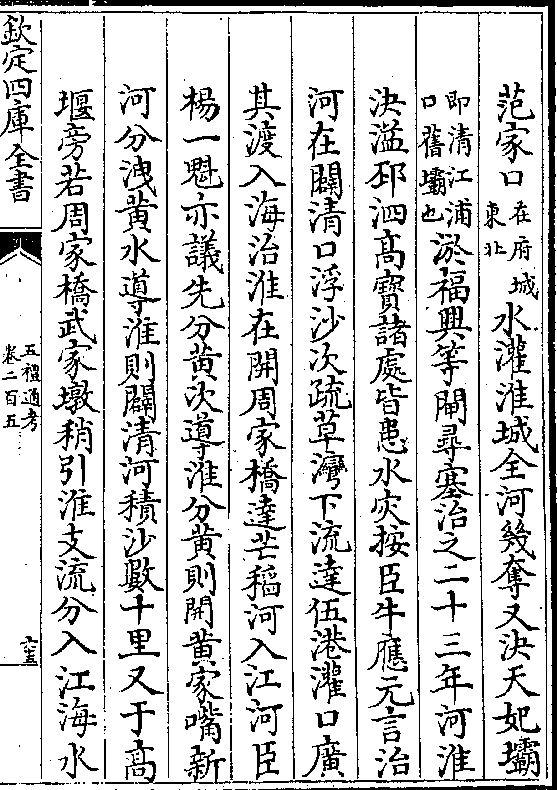 范家口在府城東北水灌淮城全河幾奪又決天妃壩
即清江浦口舊壩也淤福興等閘尋塞治之二十三年河淮
決溢邳泗高寶諸處皆患水灾按臣牛應元言治
河在闢清口浮沙次疏草灣下流達伍港灌口廣
其渡入海治淮在開周家橋達芒稻河入江河臣
楊一魁亦議先分黄次導淮分黄則開黄家嘴新
河分洩黄水導淮則闢清河積沙數十里又于高
堰旁若周家橋武家墩稍引淮支流分入江海水
欽定四庫全書
五禮通考
卷二百五
六十五